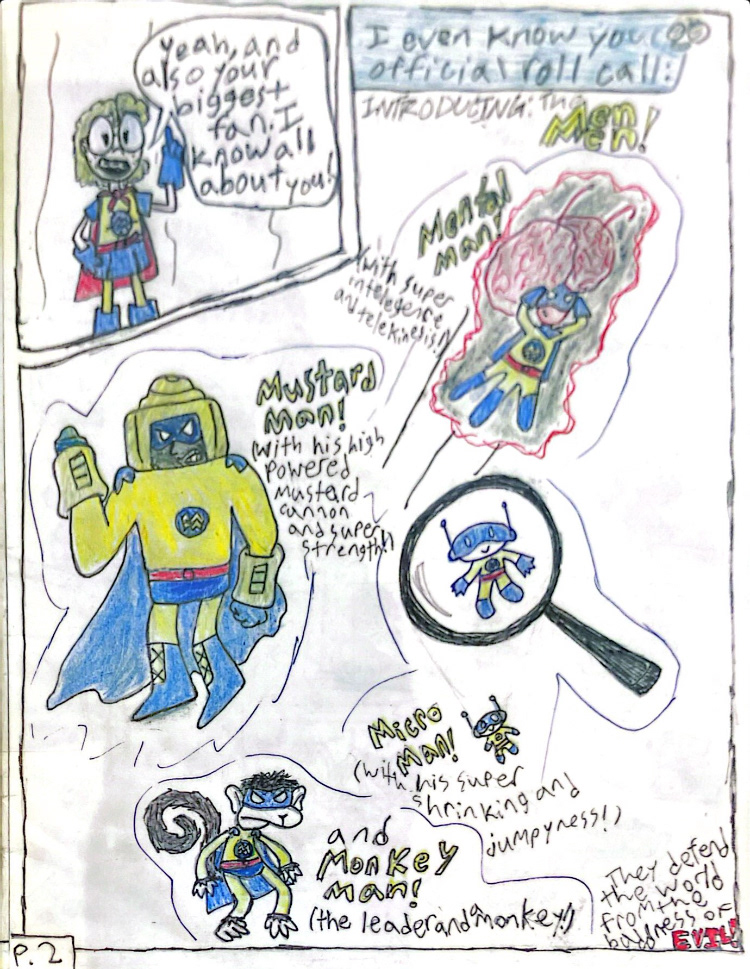 yeah, and
also your
biggest
fan. I
know all
about you!
I even know your
official roll call:
INTRODUCING: The
Men
Men!
Mental
man!
(with super
intelegence
and telekinesis!)
Mustard
Man!
(with his high
powered
mustard
cannon
and super
strength!)
Micro
Man!
(with his super
shrinking and
jumpyness!)
and
Monkey
man!
(the leader and a monkey!)
They defend
the world
from the
baddness of
EVIL!
P. 2